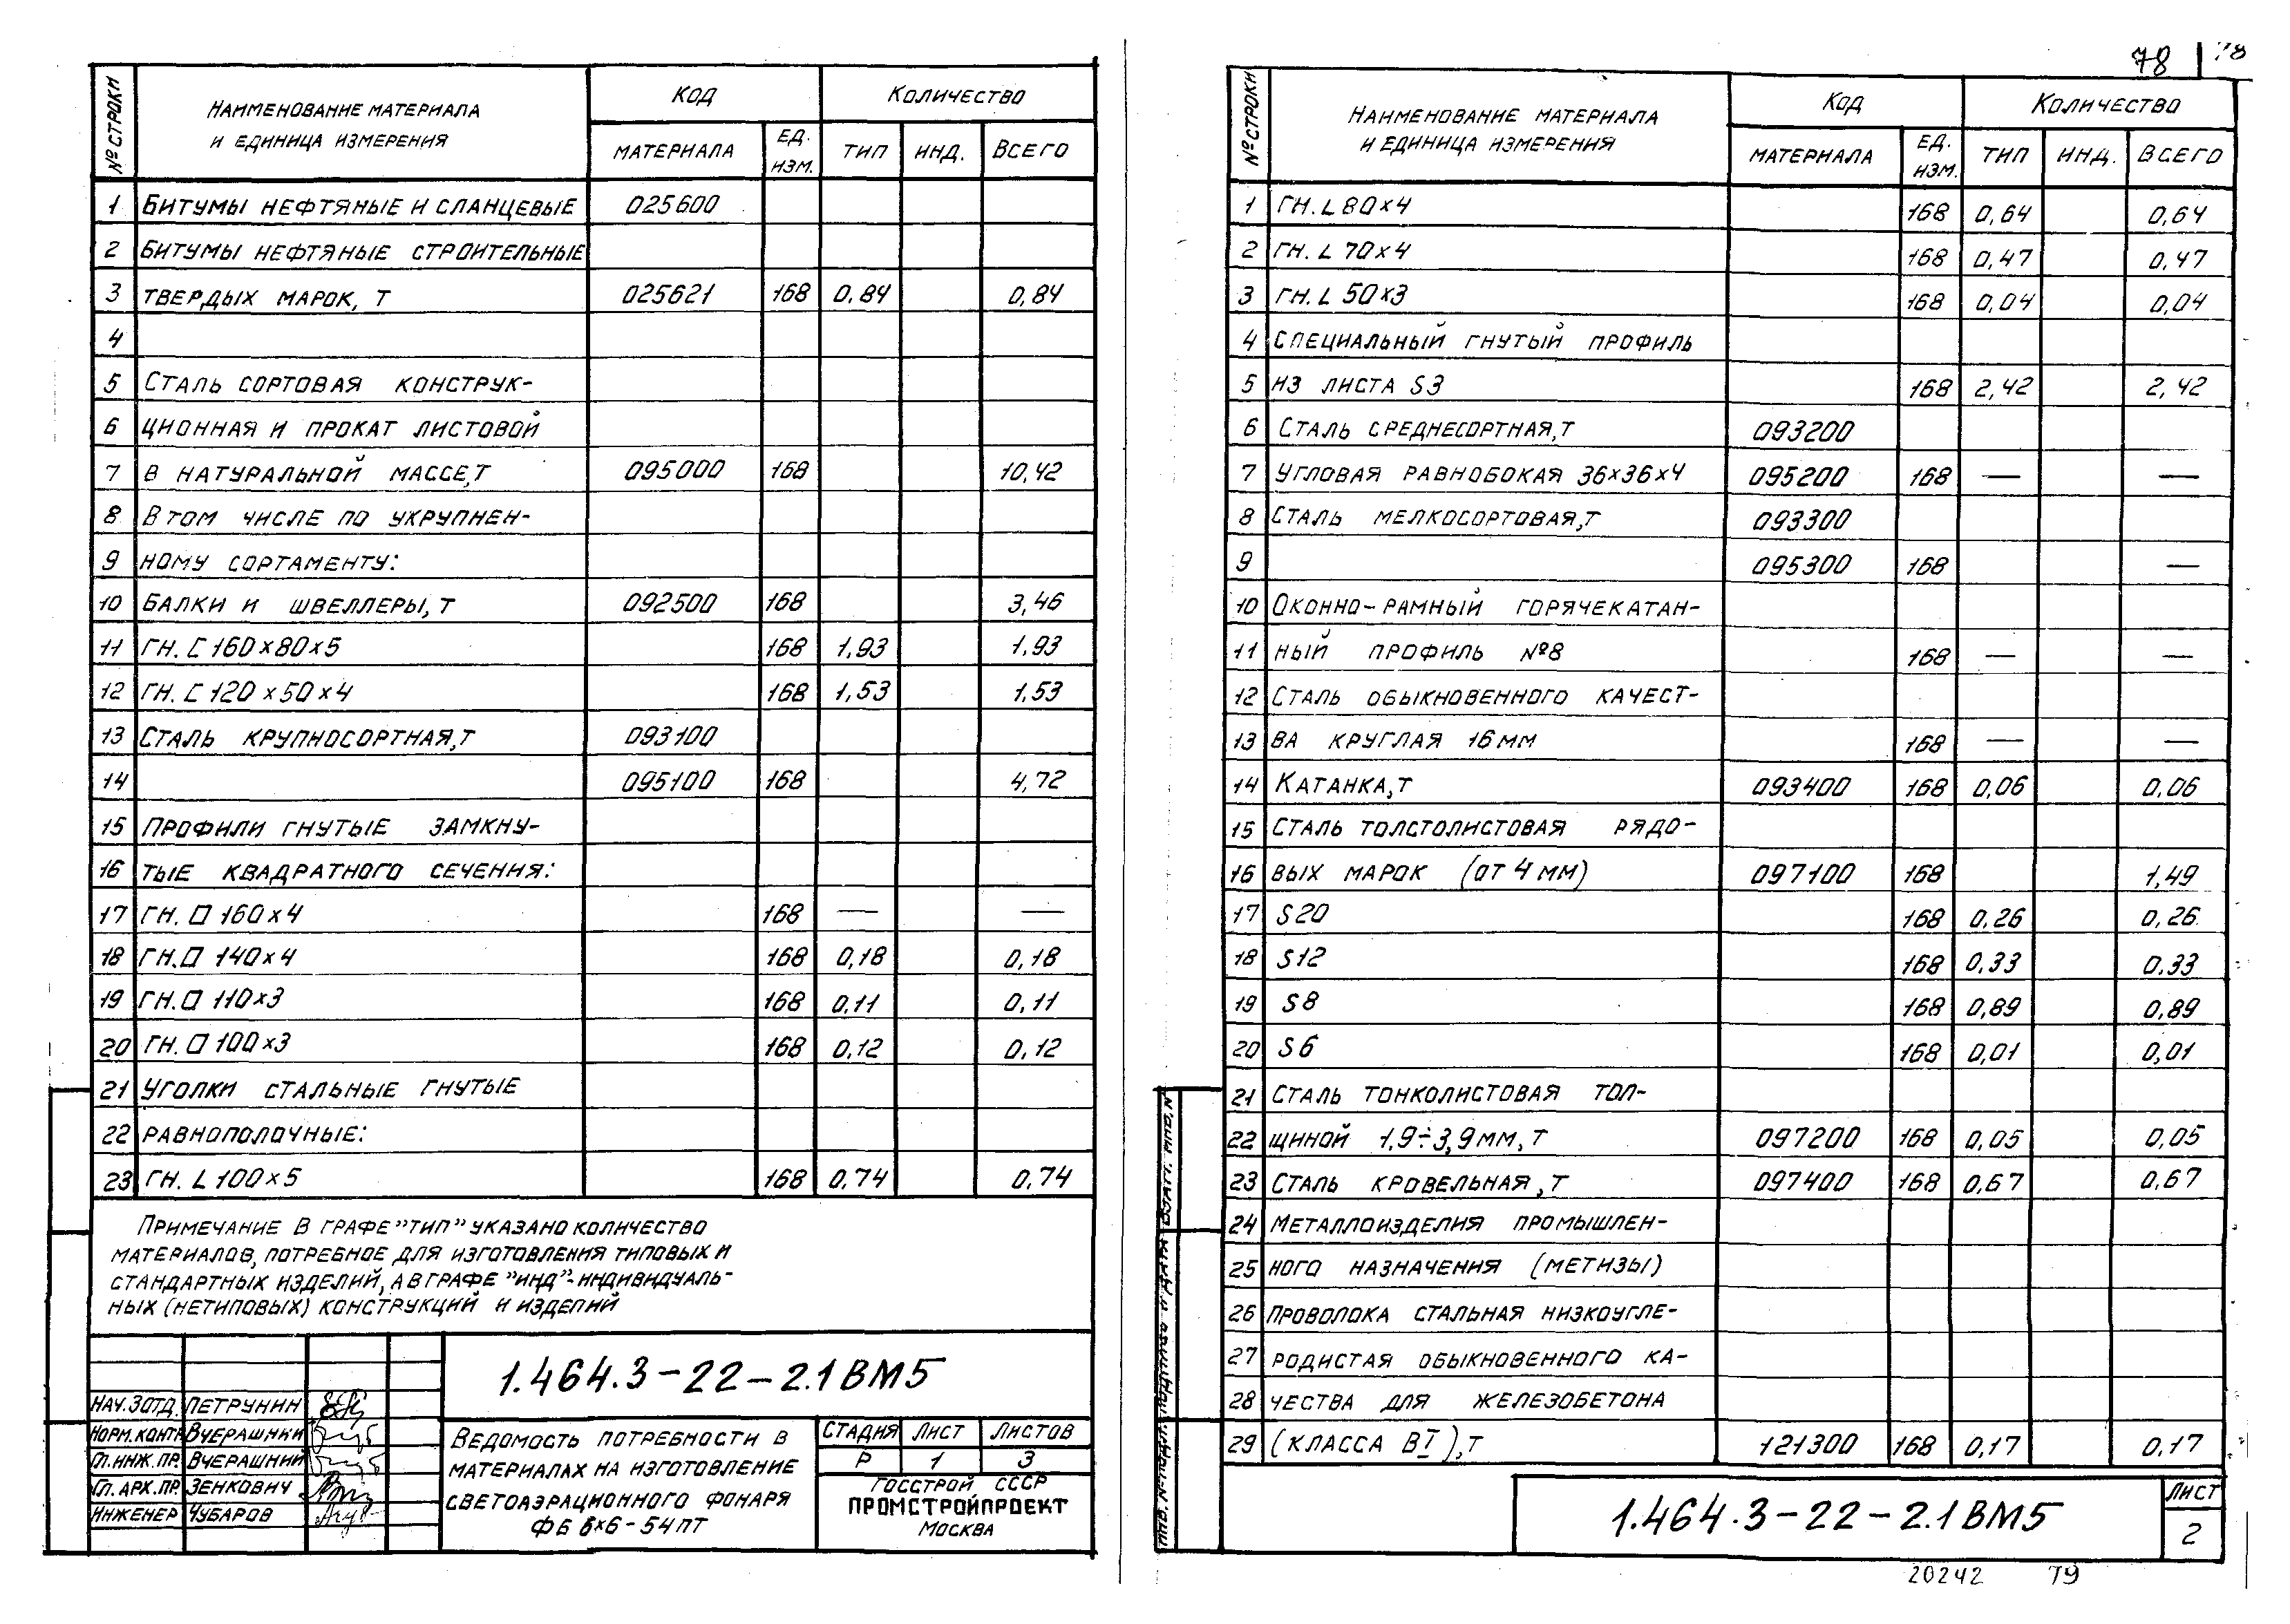 № СТРОКИ
НАИМЕНОВАНИЕ МАТЕРИАЛА
И ЕДИНИЦА ИЗМЕРЕНИЯ
КОД
КОЛИЧЕСТВО
МАТЕРИАЛА ЕД. ИЗМ. ТИП ИНД. ВСЕГО
1 БИТУМЫ НЕФТЯНЫЕ И СЛАНЦЕВЫЕ 025600
2 БИТУМЫ НЕФТЯНЫЕ СТРОИТЕЛЬНЫЕ
3 ТВЕРДЫХ МАРОК, Т 025621 168 0,84 0,84
4
5 СТАЛЬ СОРТОВАЯ КОНСТРУК-
6 ЦИОННАЯ И ПРОКАТ ЛИСТОВОЙ
7 В НАТУРАЛЬНОЙ МАССЕ,Т 095000 168 10,42
8 В ТОМ ЧИСЛЕ ПО УКРУПНЕН-
9 НОМУ СОРТАМЕНТУ:
10 БАЛКИ И ШВЕЛЛЕРЫ, Т 092500 168 3,46
11 ГН. [ 160×80×5 168 1,93 1,93
12 ГН. [ 120×50×4 168 1,53 1,53
13 СТАЛЬ КРУПНОСОРТНАЯ,Т 093100
14 095100 168 4,72
15 ПРОФИЛИ ГНУТЫЕ ЗАМКНУ-
16 ТЫЕ КВАДРАТНОГО СЕЧЕНИЯ:
17 ГН. □ 160×4 168 — —
18 ГН. □ 140×4 168 0,18 0,18
19 ГН. □ 110×3 168 0,11 0,11
20 ГН. □ 100×3 168 0,12 0,12
21 УГОЛКИ СТАЛЬНЫЕ ГНУТЫЕ
22 РАВНОПОЛОЧНЫЕ:
23 ГН. L 100×5 168 0,74 0,74
ПРИМЕЧАНИЕ В ГРАФЕ "ТИП" УКАЗАНО КОЛИЧЕСТВО
МАТЕРИАЛОВ, ПОТРЕБНОЕ ДЛЯ ИЗГОТОВЛЕНИЯ ТИПОВЫХ И
СТАНДАРТНЫХ ИЗДЕЛИЙ, А В ГРАФЕ "ИНД"-ИНДИВИДУАЛЬ-
НЫХ (НЕТИПОВЫХ) КОНСТРУКЦИЙ И ИЗДЕЛИЙ
1.464.3-22-2.1ВМ5
НАЧ.ЗОТД. ПЕТРУНИН
НОРМ.КОНТР ВЧЕРАШНИЙ
ГЛ.ИНЖ.ПР. ВЧЕРАШНИЙ
ГЛ.АРХ.ПР. ЗЕНКОВИЧ
ИНЖЕНЕР ЧУБАРОВ
ВЕДОМОСТЬ ПОТРЕБНОСТИ В
МАТЕРИАЛАХ НА ИЗГОТОВЛЕНИЕ
СВЕТОАЭРАЦИОННОГО ФОНАРЯ
ФБ 6×6-54ПТ
СТАДИЯ ЛИСТ ЛИСТОВ
Р 1 3
ГОССТРОЙ СССР
ПРОМСТРОЙПРОЕКТ
МОСКВА
78 78
№ СТРОКИ
НАИМЕНОВАНИЕ МАТЕРИАЛА
И ЕДИНИЦА ИЗМЕРЕНИЯ
КОД
КОЛИЧЕСТВО
МАТЕРИАЛА ЕД. ИЗМ. ТИП ИНД. ВСЕГО
1 ГН. L 80×4 168 0,64 0,64
2 ГН. L 70×4 168 0,47 0,47
3 ГН. L 50×3 168 0,04 0,04
4 СПЕЦИАЛЬНЫЙ ГНУТЫЙ ПРОФИЛЬ
5 ИЗ ЛИСТА S3 168 2,42 2,42
6 СТАЛЬ СРЕДНЕСОРТНАЯ,Т 093200
7 УГЛОВАЯ РАВНОБОКАЯ 36×36×4 095200 168 — —
8 СТАЛЬ МЕЛКОСОРТОВАЯ,Т 093300
9 095300 168 —
10 ОКОННО-РАМНЫЙ ГОРЯЧЕКАТАН-
11 НЫЙ ПРОФИЛЬ №8 168 — —
12 СТАЛЬ ОБЫКНОВЕННОГО КАЧЕСТ-
13 ВА КРУГЛАЯ 16ММ 168 — —
14 КАТАНКА,Т 093400 168 0,06 0,06
15 СТАЛЬ ТОЛСТОЛИСТОВАЯ РЯДО-
16 ВЫХ МАРОК (ОТ 4 ММ) 097100 168 1,49
17 S20 168 0,26 0,26
18 S12 168 0,33 0,33
19 S8 168 0,89 0,89
20 S6 168 0,01 0,01
21 СТАЛЬ ТОНКОЛИСТОВАЯ ТОЛ-
22 ЩИНОЙ 1,9÷3,9ММ, Т 097200 168 0,05 0,05
23 СТАЛЬ КРОВЕЛЬНАЯ,Т 097400 168 0,67 0,67
24 МЕТАЛЛОИЗДЕЛИЯ ПРОМЫШЛЕН-
25 НОГО НАЗНАЧЕНИЯ (МЕТИЗЫ)
26 ПРОВОЛОКА СТАЛЬНАЯ НИЗКОУГЛЕ-
27 РОДИСТАЯ ОБЫКНОВЕННОГО КА-
28 ЧЕСТВА ДЛЯ ЖЕЛЕЗОБЕТОНА
29 (КЛАССА ВI),Т 121300 168 0,17 0,17
ИНВ. № ПОДЛ. ПОДПИСЬ И ДАТА ВЗАМ. ИНВ. N
1.464.3-22-2.1ВМ5
ЛИСТ
2
20242 79